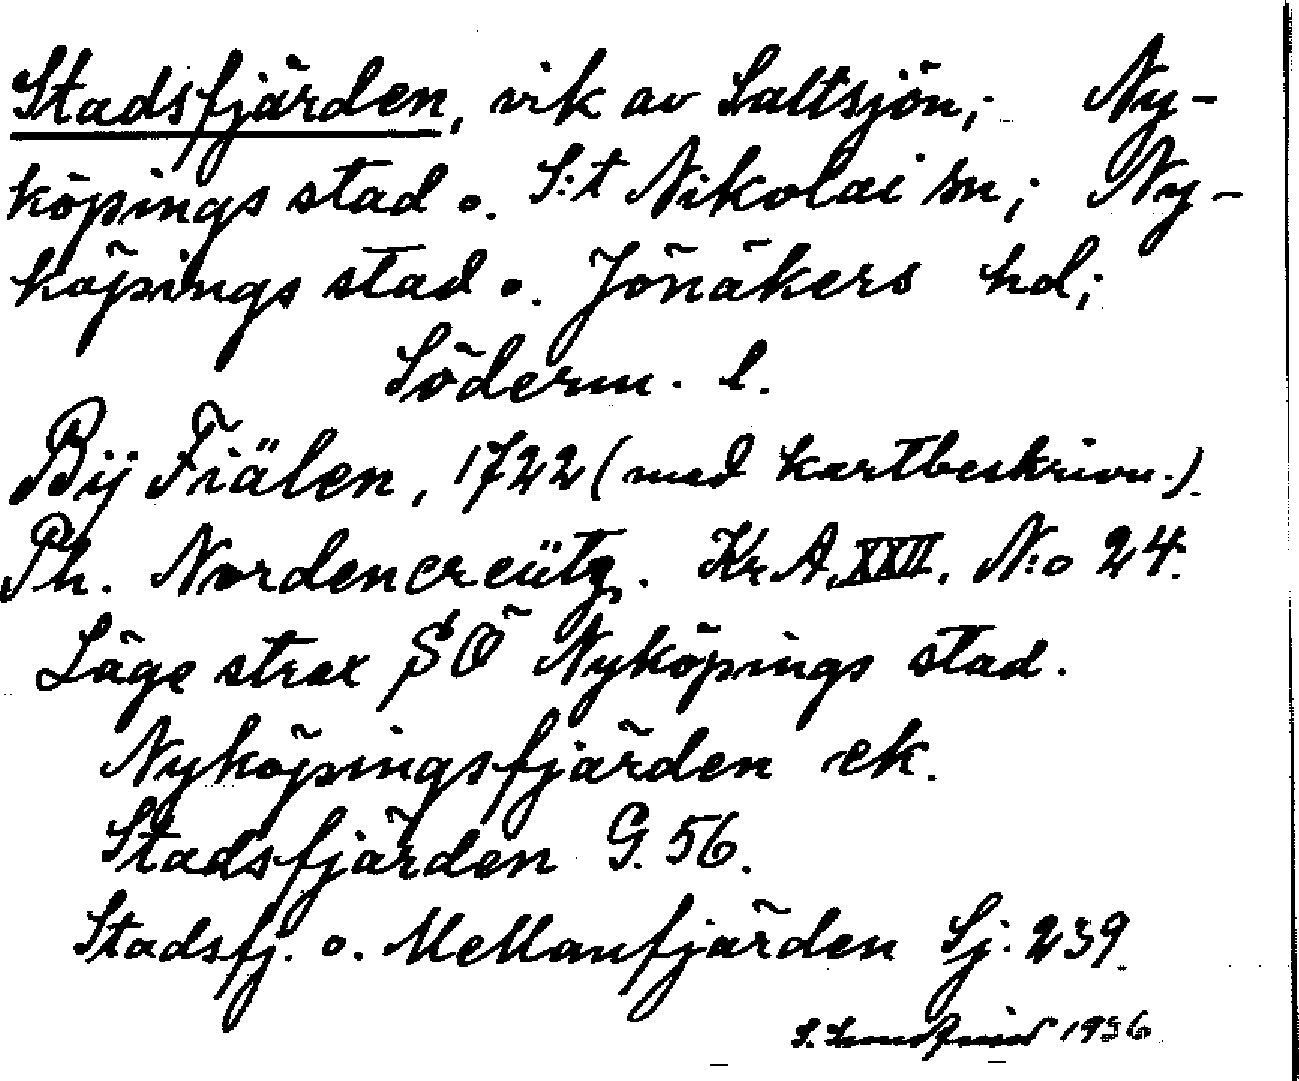 Stadsfjärden, vik av Saltsjön; Ny-
köpings stad o. S:t Nikolai sn; Ny-
köpings stad o. Jönåkers hd;
Söderm. l.
Bij Fiälen, 1722 (med kartbeskrivn.)
Ph. Nordencreütz. Kr A XXII. N:o 24.
Läge strax SÖ Nyköpings stad.
Nyköpingsfjärden ek.
Stadsfjärden G. 56.
Stadsfj. o. Mellanfjärden Sj: 239.
S. 1936